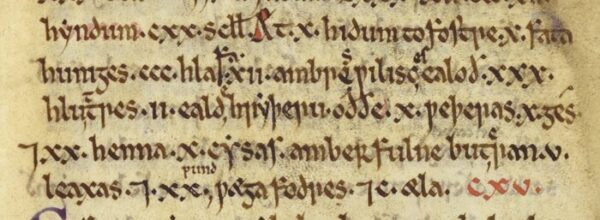 hyndum. cxx. scll̃. Æt. x. hidum to fostre. x. fata
huniges. ccc. hlafa. xii. ambre ƿilisc ealoð. xxx.
hluttres. ii. eald hryþeru oððe. x. ƿeþeras. x. gés.
⁊ xx. henna. x. cysas. amber fulne buteran. v.
leaxas. ⁊. xx. pund ƿæga fodres. ⁊ c. æla. CXV.